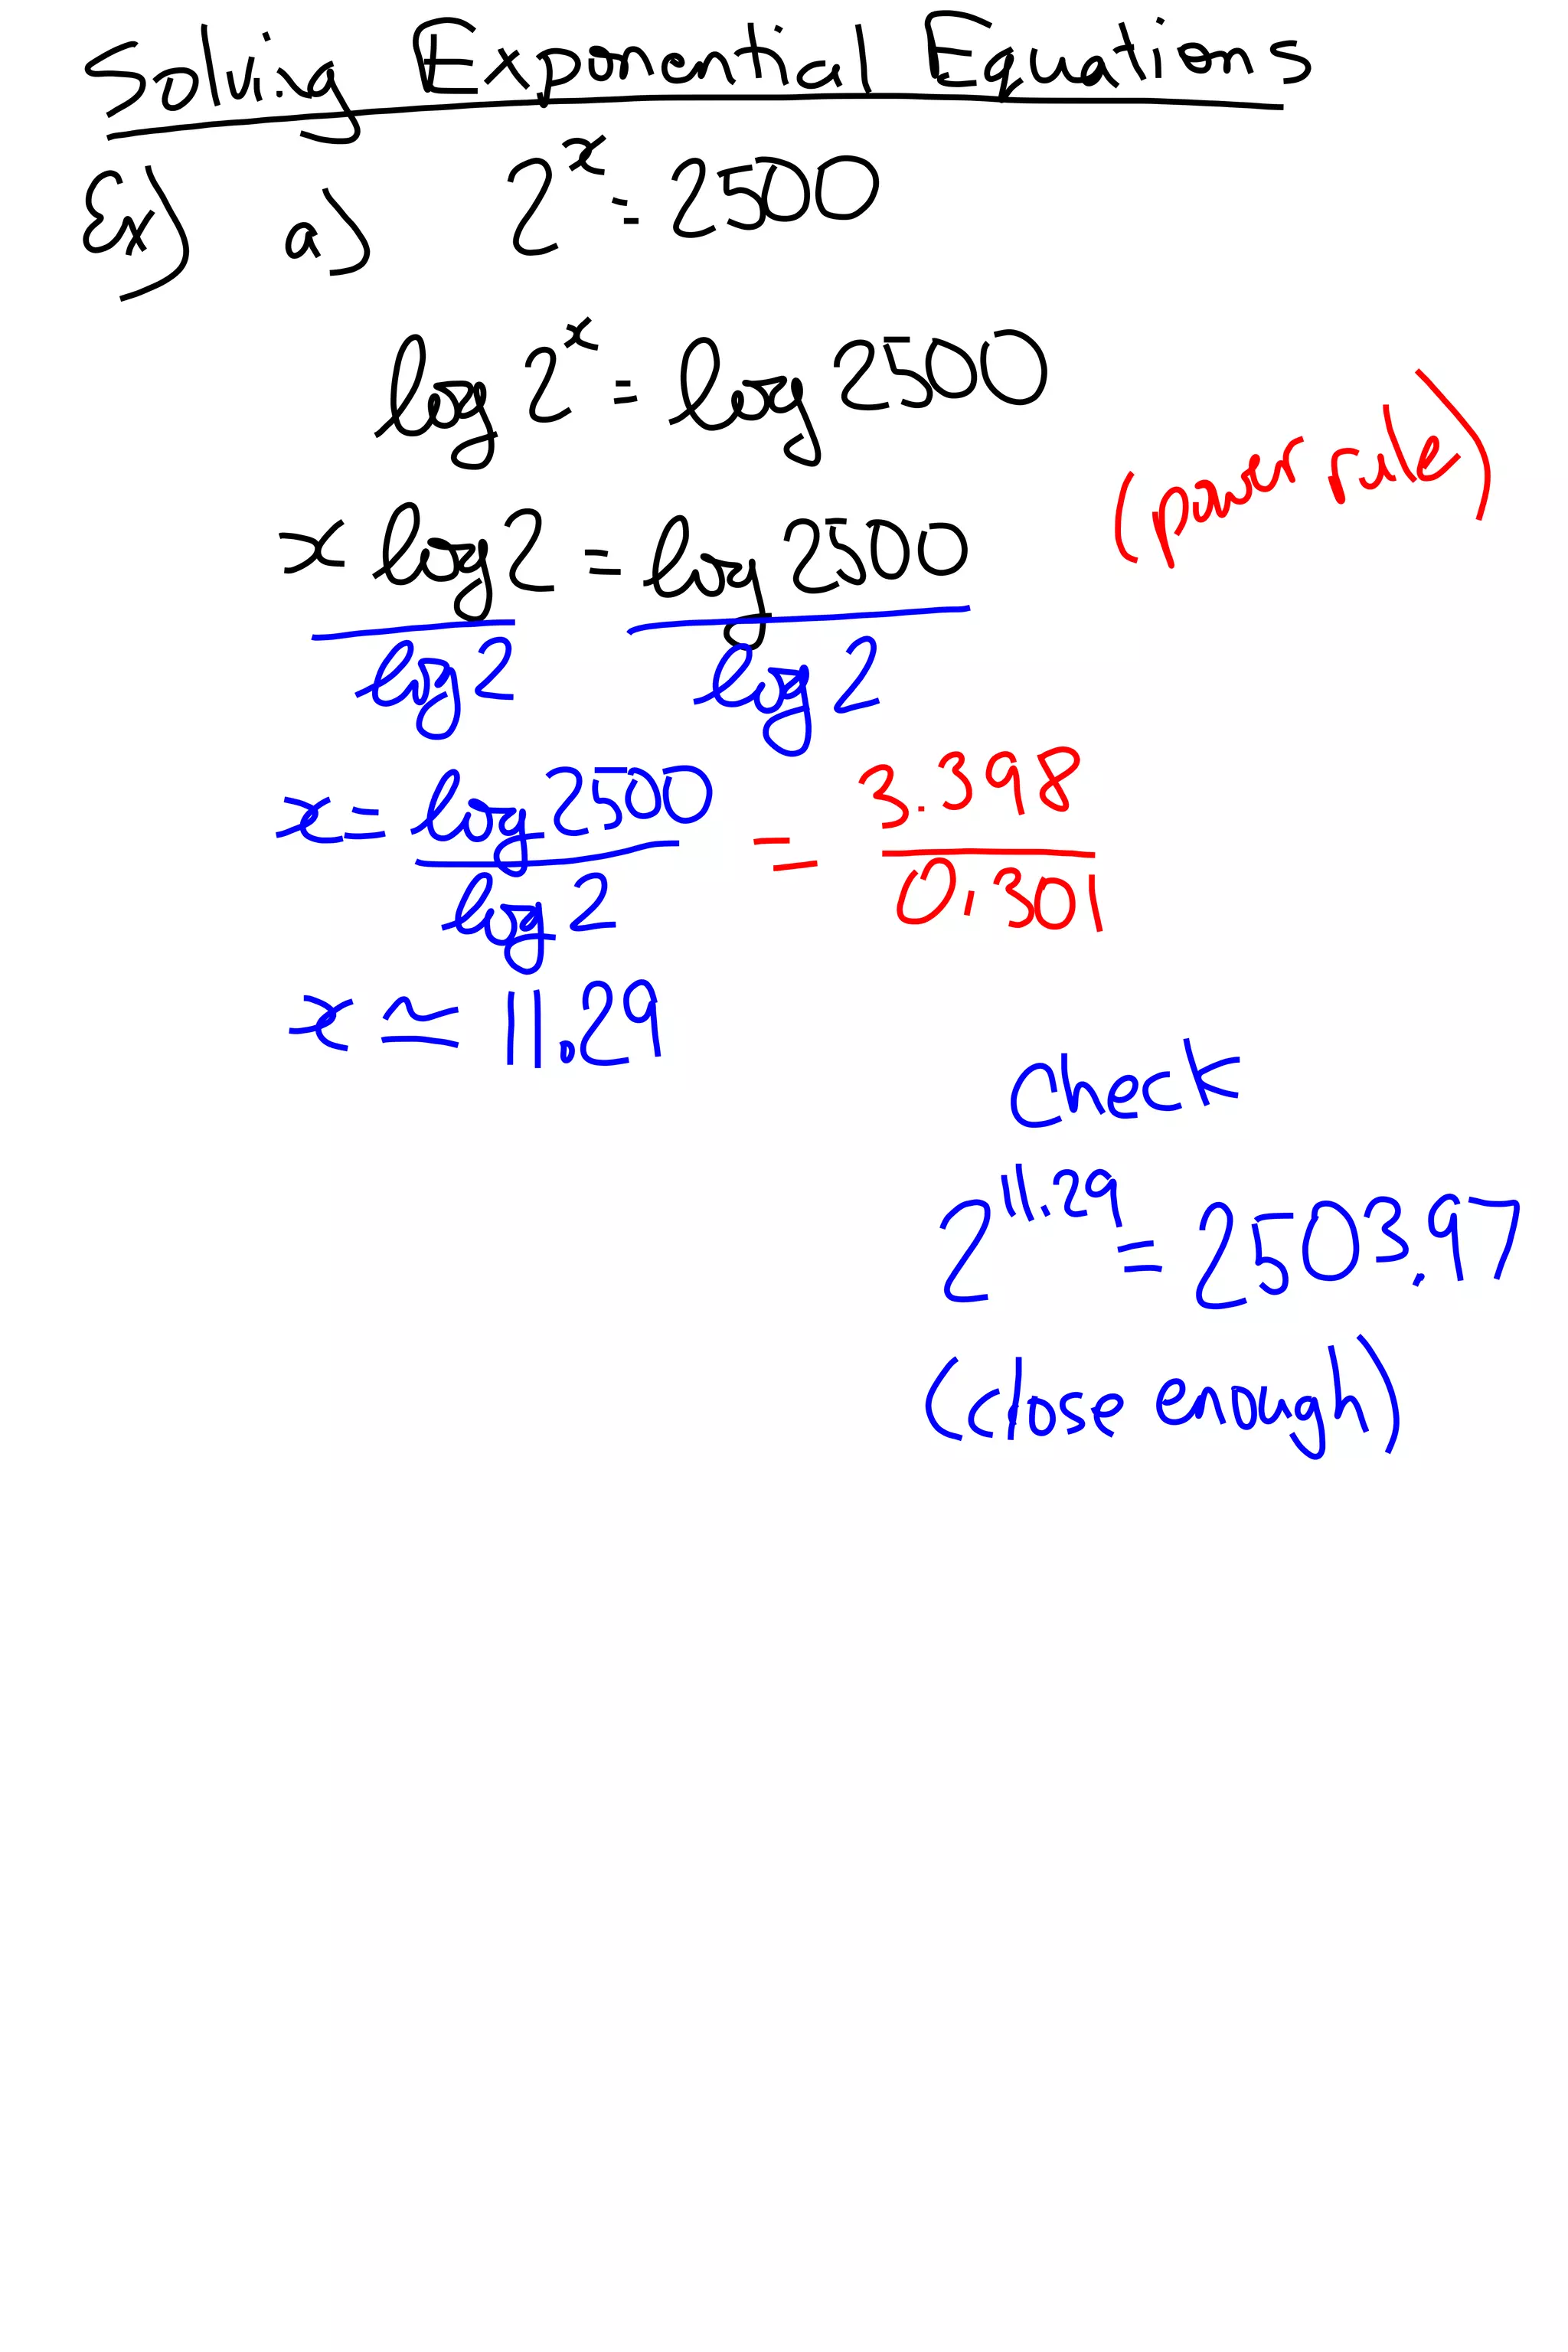 Solving Exponential Equations
Ex) a) 2^x = 2500
log 2^x = log 2500
(power rule)
x log 2 = log 2500
log 2 log 2
x = log 2500 = 3.398
log 2 0.301
x ≃ 11.29
Check
2^11.29 = 2503.97
(close enough)